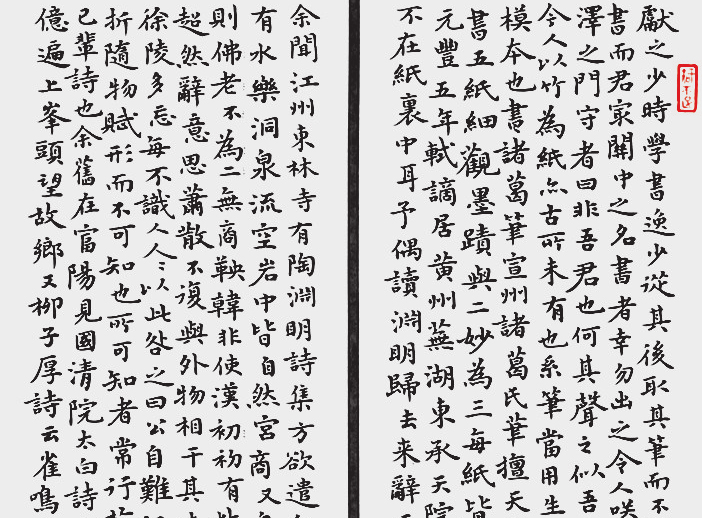 獻之少時學書逸少從其後取其筆而不
書而君家關中之名書者幸勿出之令人咲
澤之門守者曰非吾君也何其聲之似吾
今人以竹為紙亦古所未有也系筆當用生
模本也書諸葛筆宣州諸葛氏筆擅天
書五紙細觀墨蹟與二妙為三每紙皆
元豐五年軾謫居黄州蕪湖東承天院
不在紙裏中耳予偶讀淵明歸去来辭
余聞江州東林寺有陶淵明詩集方欲遣
有水樂洞泉流空岩中皆自然宮商又
則佛老不為二無商鞅韓非使漢初初有
超然辭意思蕭散不復與外物相干其
徐陵多忘每不識人人以此咎之曰公自難
折隨物賦形而不可知也所可知者常行
己輩詩也余舊在富陽見國清院太白詩
億遍上峯頭望故鄉又柳子厚詩云崔鳴